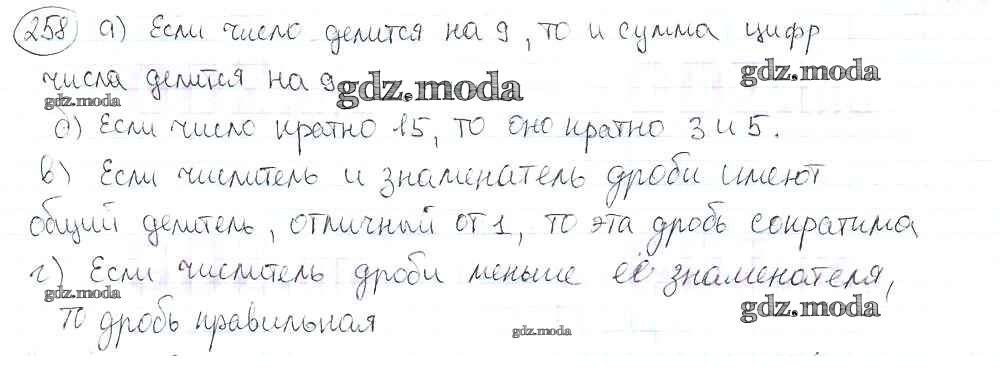 258 а) Если число делится на 9, то и сумма цифр
gdz.moda
числа делится на 9
gdz.moda
gdz.moda
б) Если число кратно 15, то оно кратно 3 и 5.
в) Если числитель и знаменатель дроби имеют
общий делитель, отличный от 1, то эта дробь сократима
г) Если числитель дроби меньше её знаменателя,
gdz.moda
gdz.moda
то дробь правильная
gdz.moda